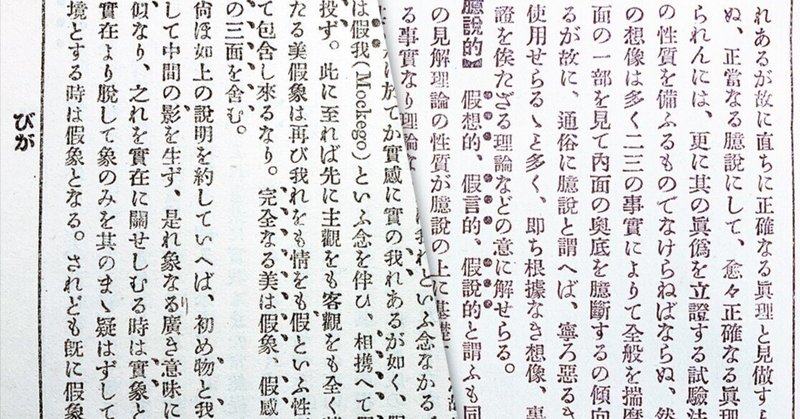 れあるが故に直ちに正確なる眞理と見做す
ぬ、正當なる臆說にして、愈々正確なる眞理
られんには、更に其の眞僞を立證する試驗法
の性質を備ふるものでなけらねばならぬ、然
の想像は多く二三の事實によりて全般を揣摩
面の一部を見て內面の奧底を臆斷するの傾向
るが故に、通俗に臆說と謂へば、寧ろ惡るき
使用せらるゝと多く、卽ち根據なき想像、事
證を俟たざる理論などの意に解せらる。
臆說的】 假想的、假言的、假說的と謂ふも同
の見解理論の性質が臆說の上に基礎
る事實なり理論な
我れといふ念なかる
に於てか實感に實の我れあるが如く、
は假我(Mockego)といふ念を伴ひ、相携へて
投す。此に至れば先に主觀をも客觀をも全
たる美假象は再び我れをも情をも假といふ性
て包含し來るなり。完全なる美は假象、假感
の三面を含む。
尙ほ如上の說明を約していへば、初め物と我
して中間の影を生ず、是れ象なり廣き意味に
似なり、之れを實在に關せしむる時は實象と
實在より脫して象のみを其のまゝ疑はずして
境とする時は假象となる。されども旣に假象
びが